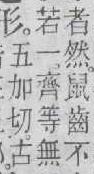 者然。鼠齒不
若一齊等無
形。五加切。古